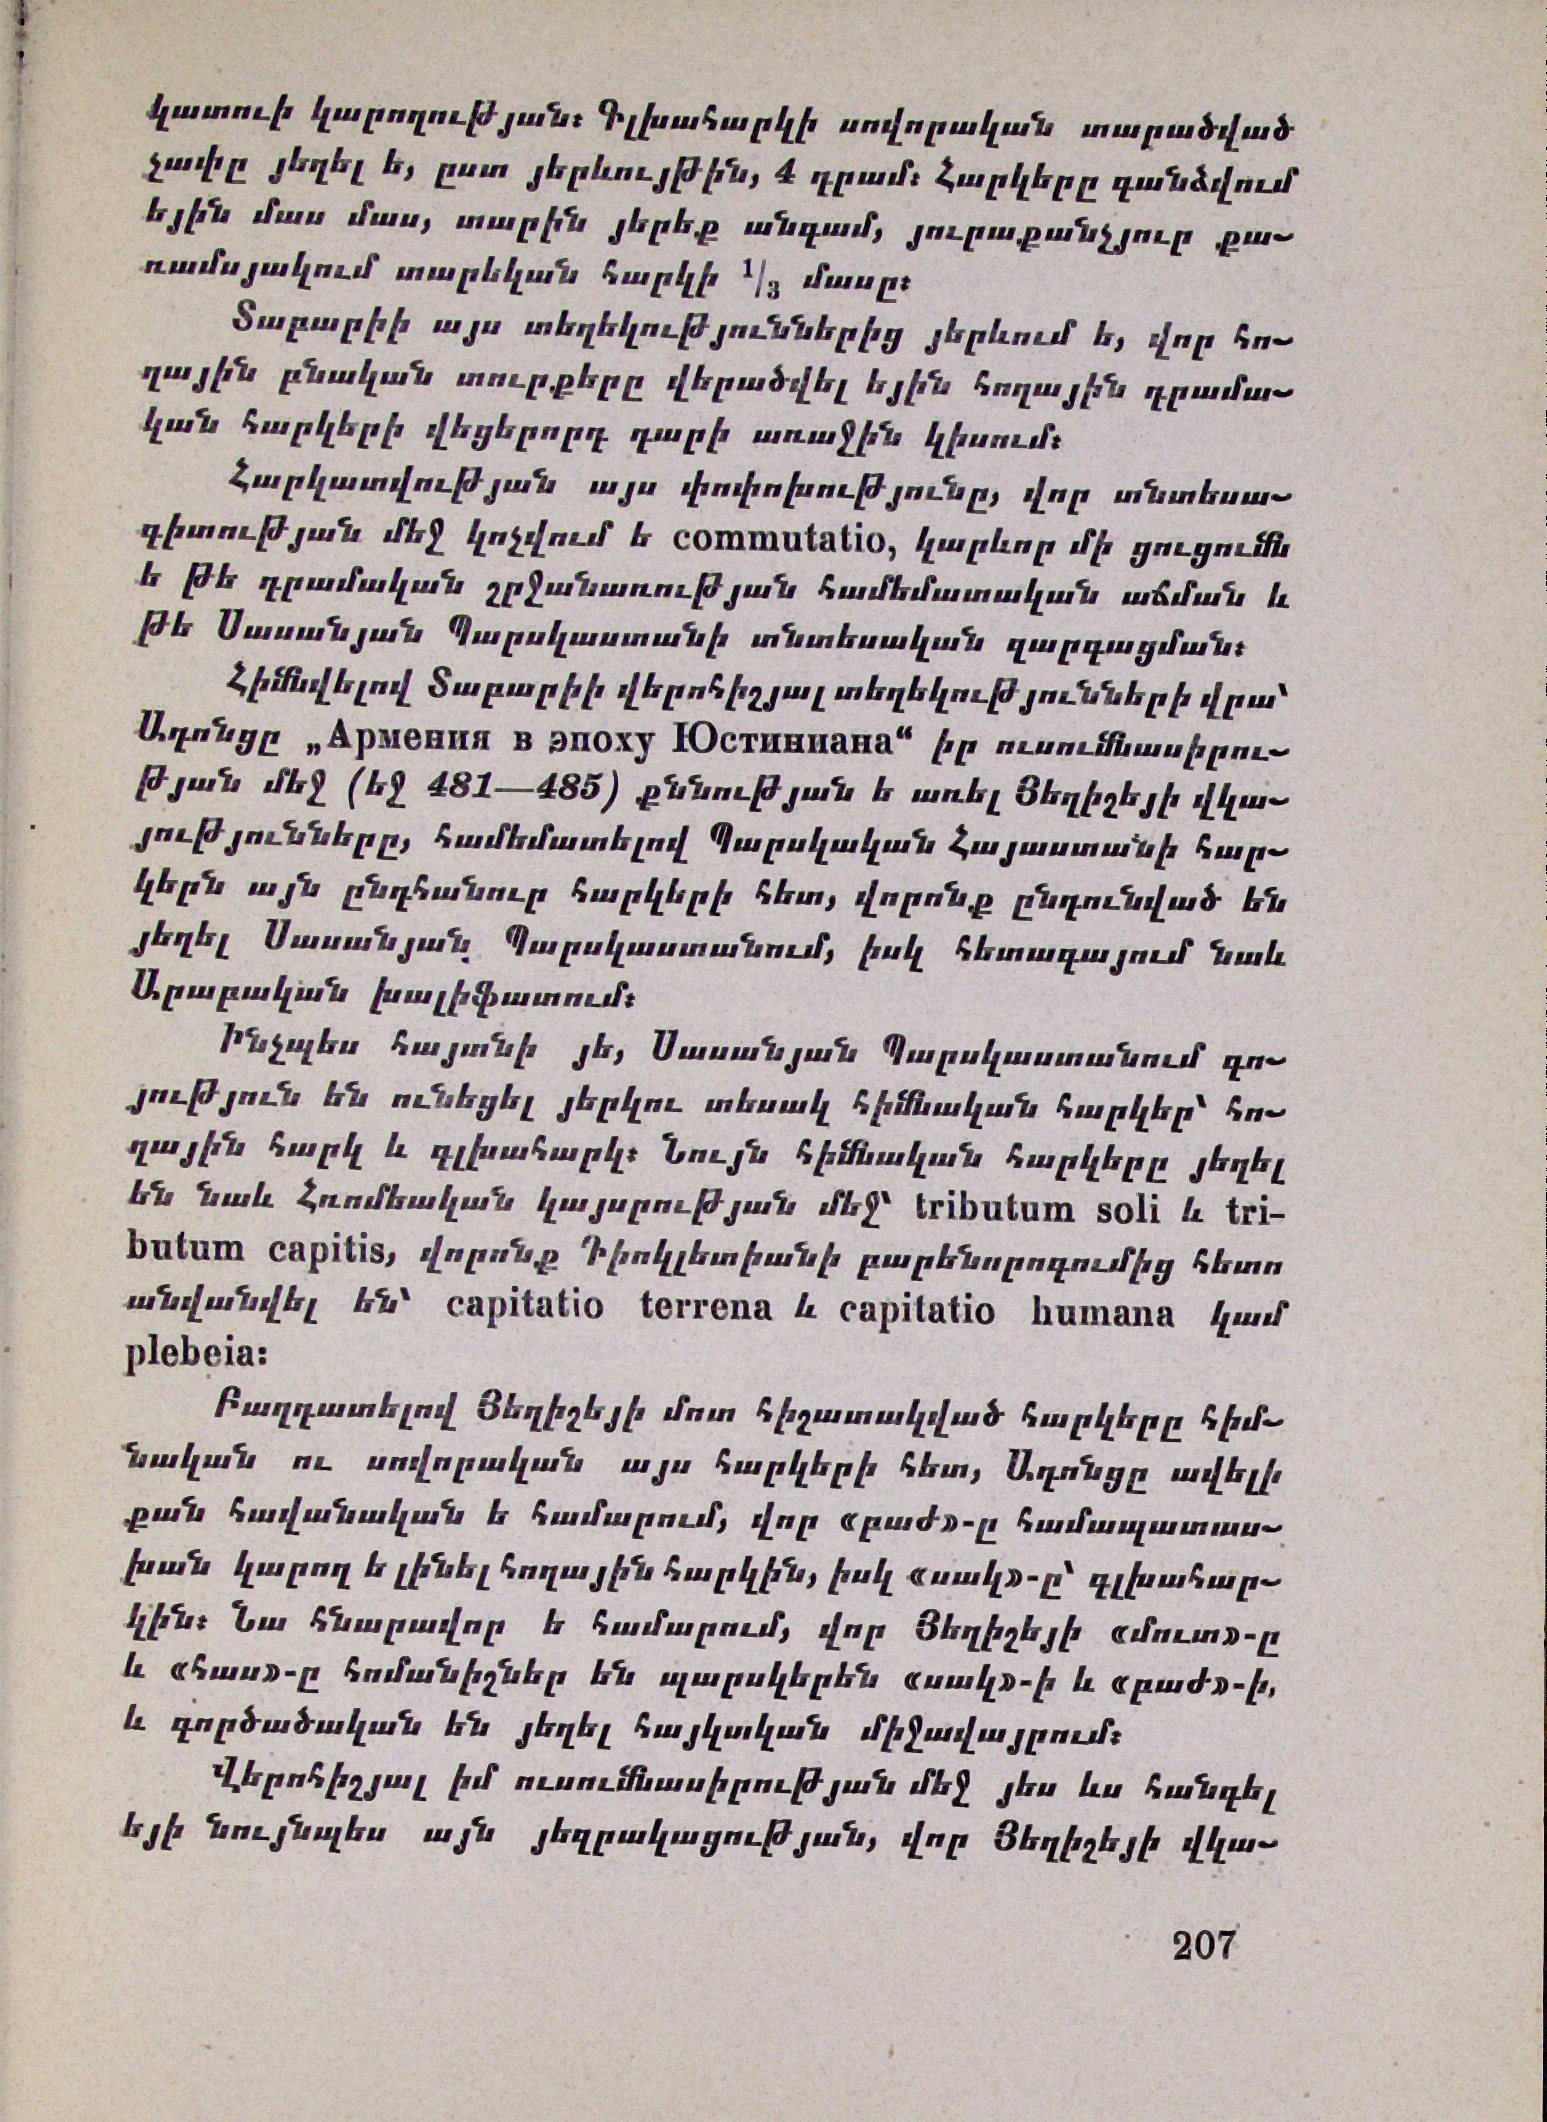 կատուի կարողության։ Գլխահարկի սովորական տարածված
չափը յեղել ե, ըստ յերևույթին, 4 դրամ։ Հարկերը գանձվում
եյին մաս մաս, տարին յերեք անգամ, յուրաքանչյուր քա-
ռամսյակում տարեկան հարկի 1/3 մասը։
Տաբարիի այս տեղեկություններից յերևում ե, վոր հո-
ղային բնական տուրքերը վերածվել եյին հողային դրամա-
կան հարկերի վեցերորդ դարի առաջին կիսում։
Հարկատվության այս փոփոխությունը, վոր տնտեսա-
գիտության մեջ կոչվում ե commutatio, կարևոր մի ցուցումն
ե թե դրամական շրջանառության համեմատական աճման և
թե Սասանյան Պարսկաստանի տնտեսական զարգացման։
Հիմնվելով Տաբարիի վերոհիշյալ տեղեկությունների վրա՝
Ադոնցը „Армения в эпоху Юстиниана“ իր ուսումնասիրու-
թյան մեջ (եջ 481—485) քննության ե առել Յեղիշեյի վկա-
յությունները, համեմատելով Պարսկական Հայաստանի հար-
կերն այն ընդհանուր հարկերի հետ, վորոնք ընդունված են
յեղել Սասանյան Պարսկաստանում, իսկ հետագայում նաև
Արաբական խալիֆատում։
Ինչպես հայտնի յե, Սասանյան Պարսկաստանում գո-
յություն են ունեցել յերկու տեսակ հիմնական հարկեր՝ հո-
ղային հարկ և գլխահարկ։ Նույն հիմնական հարկերը յեղել
են նաև Հռոմեական կայսրության մեջ՝ tributum soli և tri-
butum capitis, վորոնք Դիոկլետիանի բարենորոգումից հետո
անվանվել են՝ capitatio terrena և capitatio humana կամ
plebeia։
Բաղդատելով Յեղիշեյի մոտ հիշատակված հարկերը հիմ-
նական ու սովորական այս հարկերի հետ, Ադոնցը ավելի
քան հավանական ե համարում, վոր «բաժ»-ը համապատաս-
խան կարող ե լինել հողային հարկին, իսկ «սակ»-ը՝ գլխահար-
կին։ Նա հնարավոր ե համարում, վոր Յեղիշեյի «մուտ»-ը
և «հաս»-ը հոմանիշներ են պարսկերեն «սակ»-ի և «բաժ»-ի,
և գործածական են յեղել հայկական միջավայրում։
Վերոհիշյալ իմ ուսումնասիրության մեջ յես ևս հանգել
եյի նույնպես այն յեզրակացության, վոր Յեղիշեյի վկա-
207